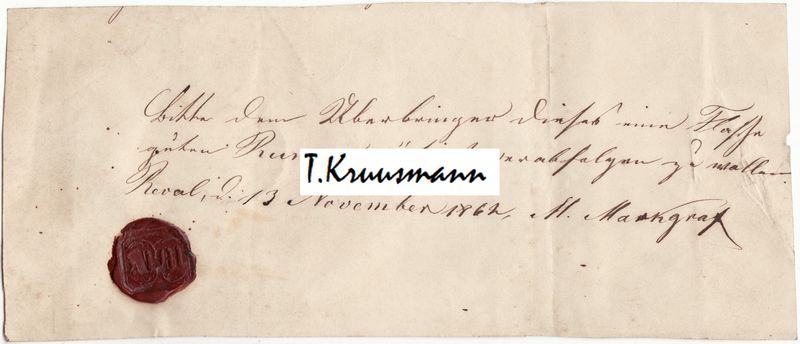 Bitte dem Überbringer dieses eine Flasche
guten verabfolgen zu wollen
T.Kruusmann
Reval, d. 13 November 1862, M. Markgraf